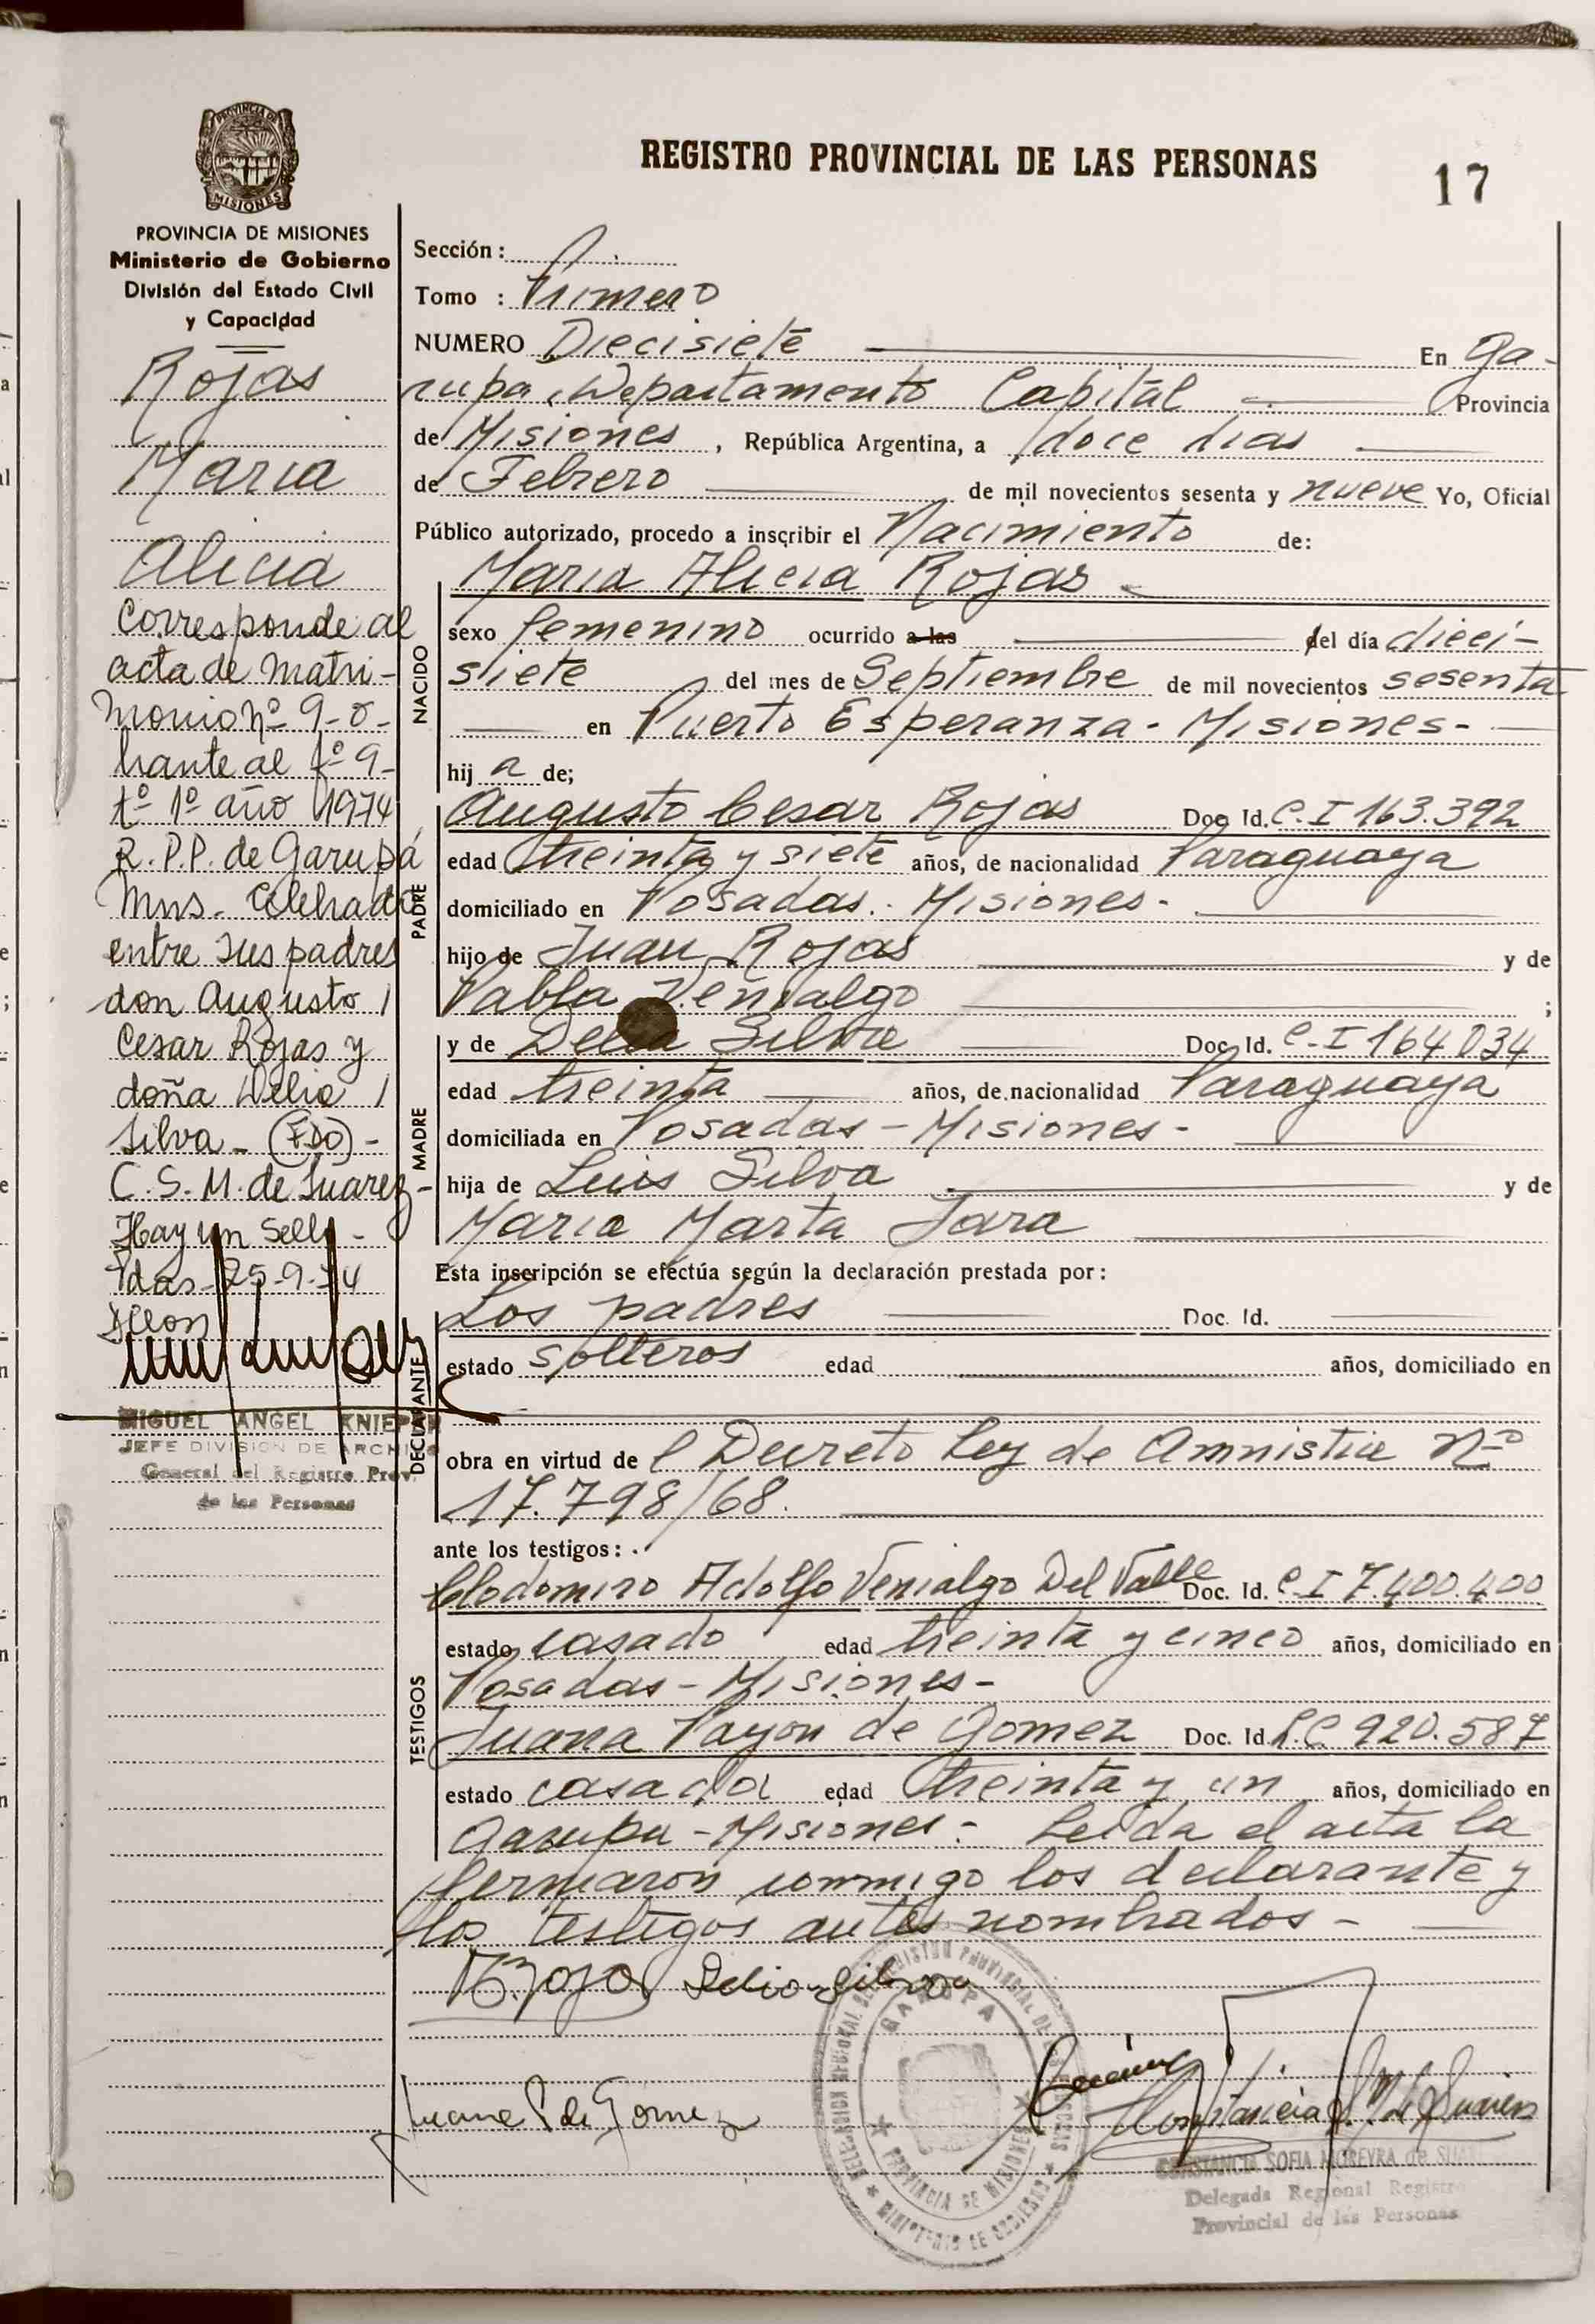 REGISTRO PROVINCIAL DE LAS PERSONAS
17
PROVINCIA DE
MISIONES
PROVINCIA DE MISIONES
Ministerio de Gobierno
División del Estado Civil
y Capacidad
Rojas
Maria
Alicia
Corresponde al
acta de matri-
monio nº 9-o-
brante al fº 9-
tº 1º año 1974
R.P.P. de Garupá
Mns. Celebrado
entre sus padres
don Augusto
Cesar Rojas y
doña Delia
Silva - FDO -
C. S. M. de Suarez -
Hay un Sello -
Pdas - 25-9-74
MIGUEL ANGEL KNIEP
JEFE DIVISION DE ARCHIVO
General del Registro Prov.
de las Personas
Sección:
Tomo : Primero
NUMERO Diecisiete En Ga-
rupa, Departamento Capital Provincia
de Misiones, República Argentina, a doce dias
de Febrero de mil novecientos sesenta y nueve Yo, Oficial
Público autorizado, procedo a inscribir el Nacimiento de:
NACIDO
Maria Alicia Rojas -
sexo femenino ocurrido a las del día dieci-
siete del mes de Septiembre de mil novecientos sesenta
en Puerto Esperanza - Misiones -
hij a de;
PADRE
Augusto Cesar Rojas Doc Id. C.I 163.392
edad treinta y siete años, de nacionalidad Paraguaya
domiciliado en Posadas. Misiones -
hijo de Juan Rojas y de
Pabla Venialgo ;
MADRE
y de Delia Silva Doc. Id. C-I 164034
edad treinta años, de nacionalidad Paraguaya
domiciliada en Posadas - Misiones -
hija de Luis Silva y de
Maria Marta Jara
Esta inscripción se efectúa según la declaración prestada por:
DECLARANTE
Los padres Doc. Id.
estado solteros edad años, domiciliado en
obra en virtud de l Decreto Ley de Amnistia Nº
17.798/68.
ante los testigos:
TESTIGOS
Clodomiro Adolfo Venialgo Del Valle Doc. Id. C-I 7.400.400
estado casado edad treinta y cinco años, domiciliado en
Posadas - Misiones -
Juana Payon de Gomez Doc. Id. L.C 920.587
estado casada edad treinta y un años, domiciliado en
Garupa - Misiones - Leida el acta la
fermaron conmigo los declarante y
los testigos antes nombrados -
Rojas Delia Silva
Juana P de Gomez
Constancia S. M. de Suarez
GARUPA
PROVINCIA DE MISIONES
MINISTERIO DE GOBIERNO
CONSTANCIA SOFIA MOREYRA de SUAR
Delegada Regional Registro
Provincial de las Personas